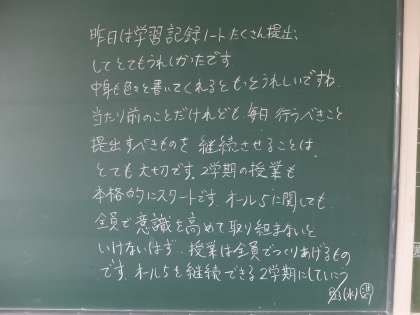 昨日は学習記録ノートたくさん提出
してとてもうれしかったです
中身も色々と書いてくれるともっとうれしいですね
当たり前のことだけれども 毎日 行うべきこと
提出すべきものを 継続させることは
とても大切です。2学期の授業も
本格的にスタートです。オール5に関しても
全員で意識を高めて取り組まないと
いけないはず。授業は全員でつくりあげるもの
です。オール5を継続できる2学期にしていこう
(水)